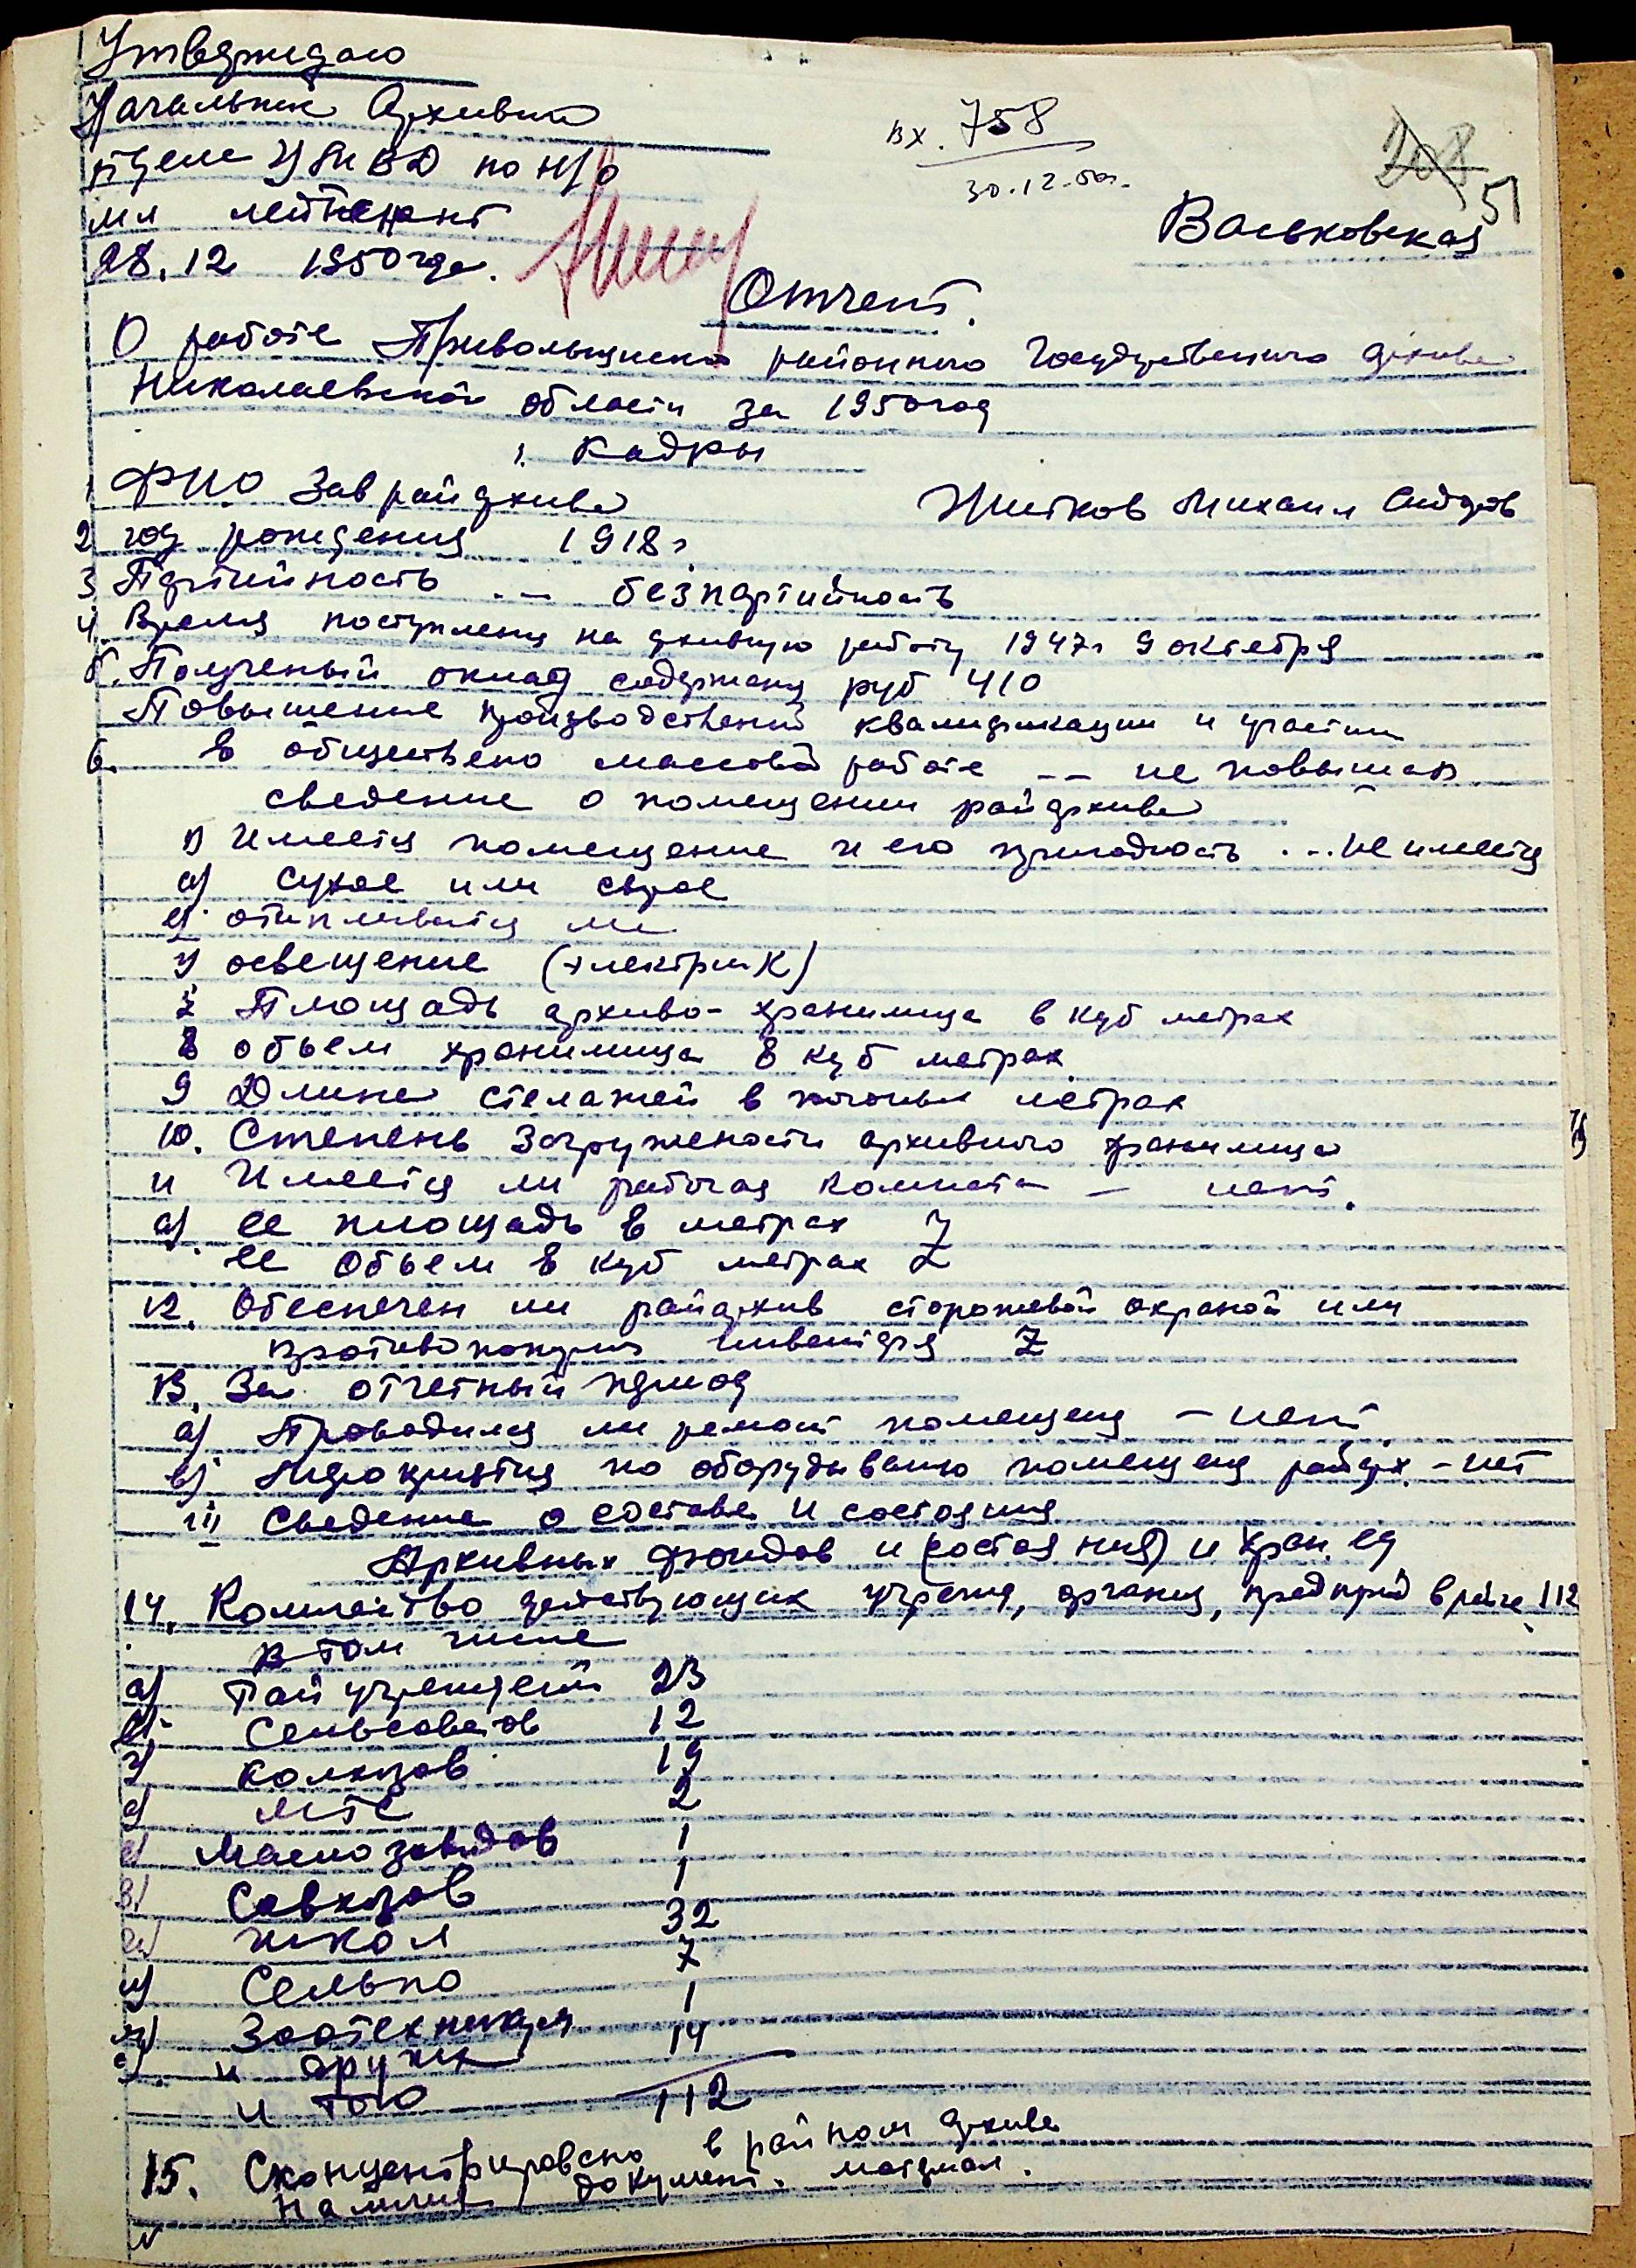 Утверждаю
Начальник Архивн
отдела УМВД по Н/о
мл лейтенант
28.12 1950 года.
вх. 758
30.12.50г.
208
51
Васьковская
Отчет.
О работе Привольнянско районного Государственного архива
Николаевской области за 1950 год
1. Кадры
1 ФИО Заврайархива Житков Михаил
2 год рождения 1918 г
3 Партийность -- безпартийность
4 Время поступления на архивную работу 1947 г 9 октебря
5. Полученый оклад содержания руб 410
Повышение производственой квалификации и участии
6. в обществено массовой работе -- не повышал
сведение о помещении райархива
1) Имеется помещение и его пригодность ... не имеется
а) сухое или сырое
в) отапливается ли
у освещение (электрик)
7 Площадь архиво-хранилища в куб метрах
8 объем хранилища в куб метрах
9 Длина стелажей в погоных метрах
10. Степень загружености архивного хранилища
11 Имеется ли рабочая комната — нет.
а) ее площадь в метрах Z
ее объем в куб метрах Z
12. Обеспечен ли райархив сторожевой охраной или
противопожарн инвентаря Z
13. За отчетный период
а) Проводился ли ремонт помещения — нет
в) Мерокриятия по оборудыванию помещения райарх. - нет
III Сведение о составе и состояния
Архивных фондов и (состояния) и хран. ея
14. Количество действующих учрежд, организ, предприй в р-не 112
в том числе
а) Рай учреждений 23
в) Сельсоветов 12
з) колхозов 19
д) МТС 2
е) Маслозаводов 1
в) Совхозов 1
школ 32
и) Сельпо 7
Зоотехникум 1
и друких 14
и того 112
15. Сконцентрировано в райном архиве
Наличия документ. матерьял.